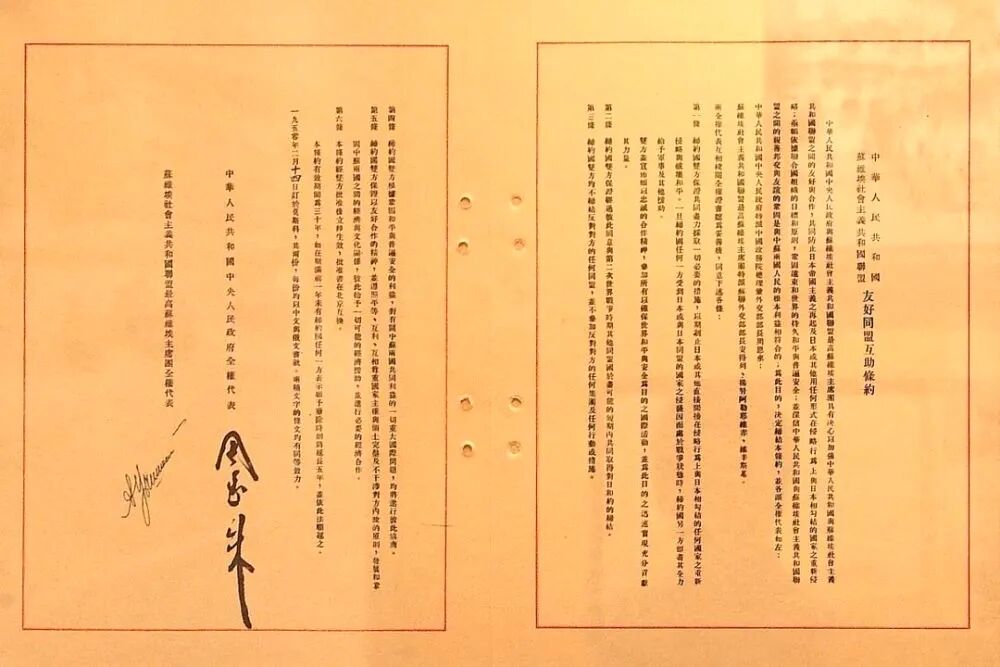 中華人民共和國
蘇維埃社會主義共和國聯盟
友好同盟互助條約
中華人民共和國中央人民政府與蘇維埃社會主義共和國聯盟最高蘇維埃主席團具有決心以加強中華人民共和國與蘇維埃社會主義
共和國聯盟之間的友好與合作，共同防止日本帝國主義之再起及日本或其他用任何形式在侵略行爲上與日本相勾結的國家之重新侵
略；亟願依據聯合國組織的目標和原則，鞏固遠東和世界的持久和平與普遍安全；並深信中華人民共和國與蘇維埃社會主義共和國聯
盟之間的親善邦交與友誼的鞏固是與中蘇兩國人民的根本利益相符合的；爲此目的，決定締結本條約，並各派全權代表如左：
中華人民共和國中央人民政府特派中國政務院總理兼外交部部長周恩來；
蘇維埃社會主義共和國聯盟最高蘇維埃主席團特派蘇聯外交部部長安得列・揚努阿勒耶維赤・維辛斯基。
兩全權代表互相校閱全權證書認爲妥善後，同意下述各條：
第一條　締約國雙方保證共同盡力採取一切必要的措施，以期制止日本或其他直接間接在侵略行爲上與日本相勾結的任何國家之重新
侵略與破壞和平。一旦締約國任何一方受到日本或與日本同盟的國家之侵襲因而處於戰爭狀態時，締約國另一方即盡其全力
給予軍事及其他援助。
雙方並宣佈願以忠誠的合作精神，參加所有以確保世界和平與安全爲目的之國際活動，並爲此目的之迅速實現充分貢獻
其力量。
第二條　締約國雙方保證經過彼此同意與第二次世界戰爭時期其他同盟國於盡可能的短期內共同取得對日和約的締結。
第三條　締約國雙方均不締結反對對方的任何同盟，並不參加反對對方的任何集團及任何行動或措施。
第四條　締約國雙方根據鞏固和平與普遍安全的利益，對有關中蘇兩國共同利益的一切重大國際問題，均將進行彼此協商。
第五條　締約國雙方保證以友好合作的精神，並遵照平等、互利、互相尊重國家主權與領土完整及不干涉對方內政的原則，發展和鞏
固中蘇兩國之間的經濟與文化關係，彼此給予一切可能的經濟援助，並進行必要的經濟合作。
第六條　本條約經雙方批准後立即生效，批准書在北京互換。
本條約有效期間爲三十年，如在期滿前一年未有締約國任何一方表示願予廢除時則將延長五年，並依此法順延之。
一九五〇年二月十四日訂於莫斯科，共兩份，每份均以中文與俄文書就。兩種文字的條文均有同等效力。
中華人民共和國中央人民政府全權代表
周恩來
蘇維埃社會主義共和國聯盟最高蘇維埃主席團全權代表